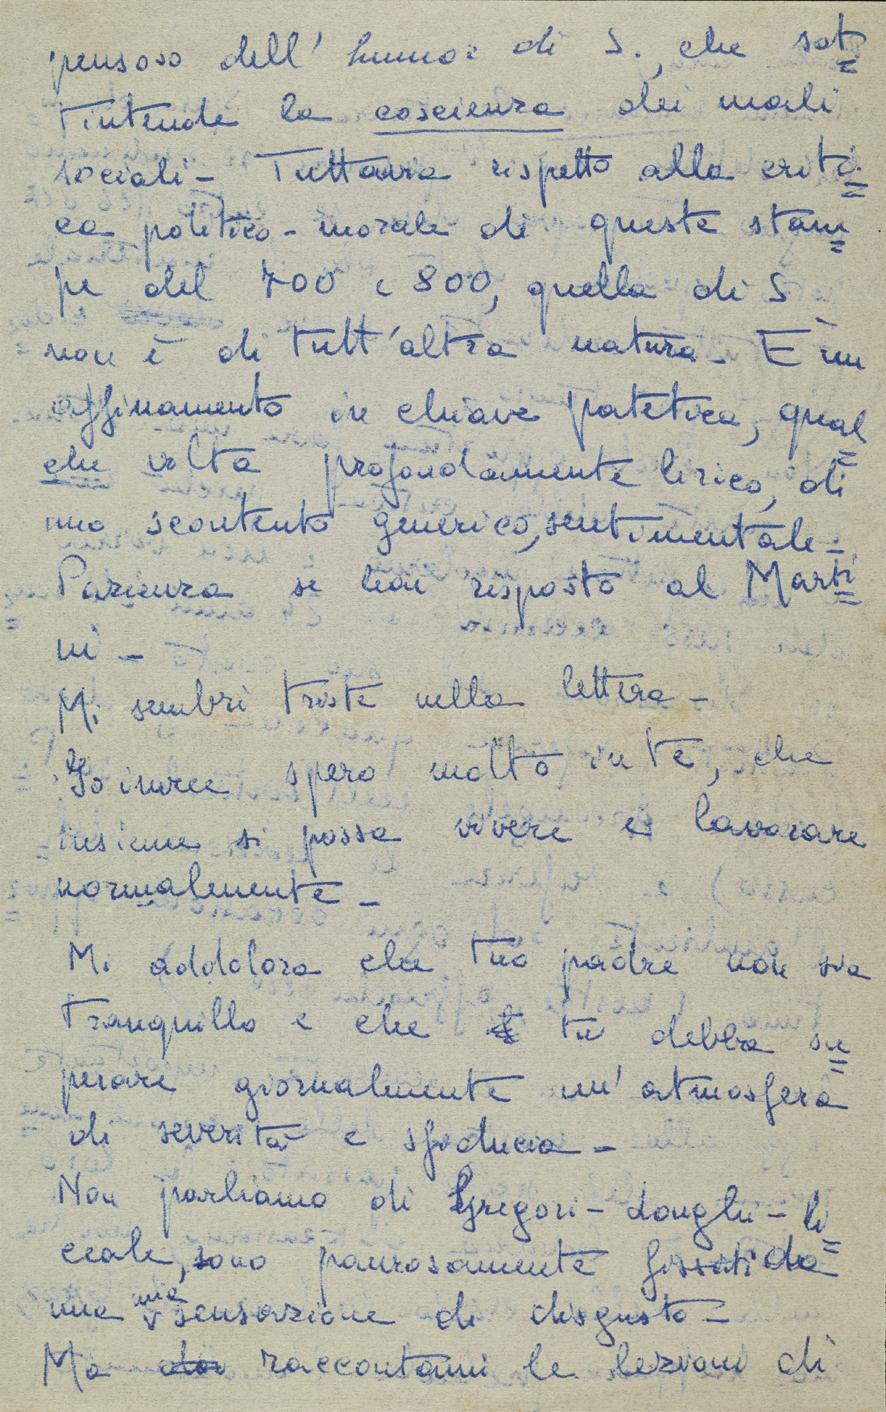 pensoso dell'humor di S., che sot=
tintende la coscienza dei mali
sociali - Tuttavia rispetto alla criti=
ca politico-morale di queste stam=
pe del 700 e 800, quella di S
non è di tutt'altra natura - È un
affinamento in chiave patetica, qual=
che volta profondamente lirica, di
uno scontento generico, sentimentale -
Pazienza se hai risposto al Marti=
ni -
Mi sembri triste nella lettera -
Io invece spero molto in te, che
insieme si possa vivere e lavorare
normalmente -
Mi addolora che tuo padre non sia
tranquillo e che tu debba su=
perare giornalmente un'atmosfera
di severità e sfiducia -
Non parliamo di Gregori - Longhi - li=
ceale, sono paurosamente fissati da
una mia sensazione di disgusto -
Ma raccontami le lezioni di